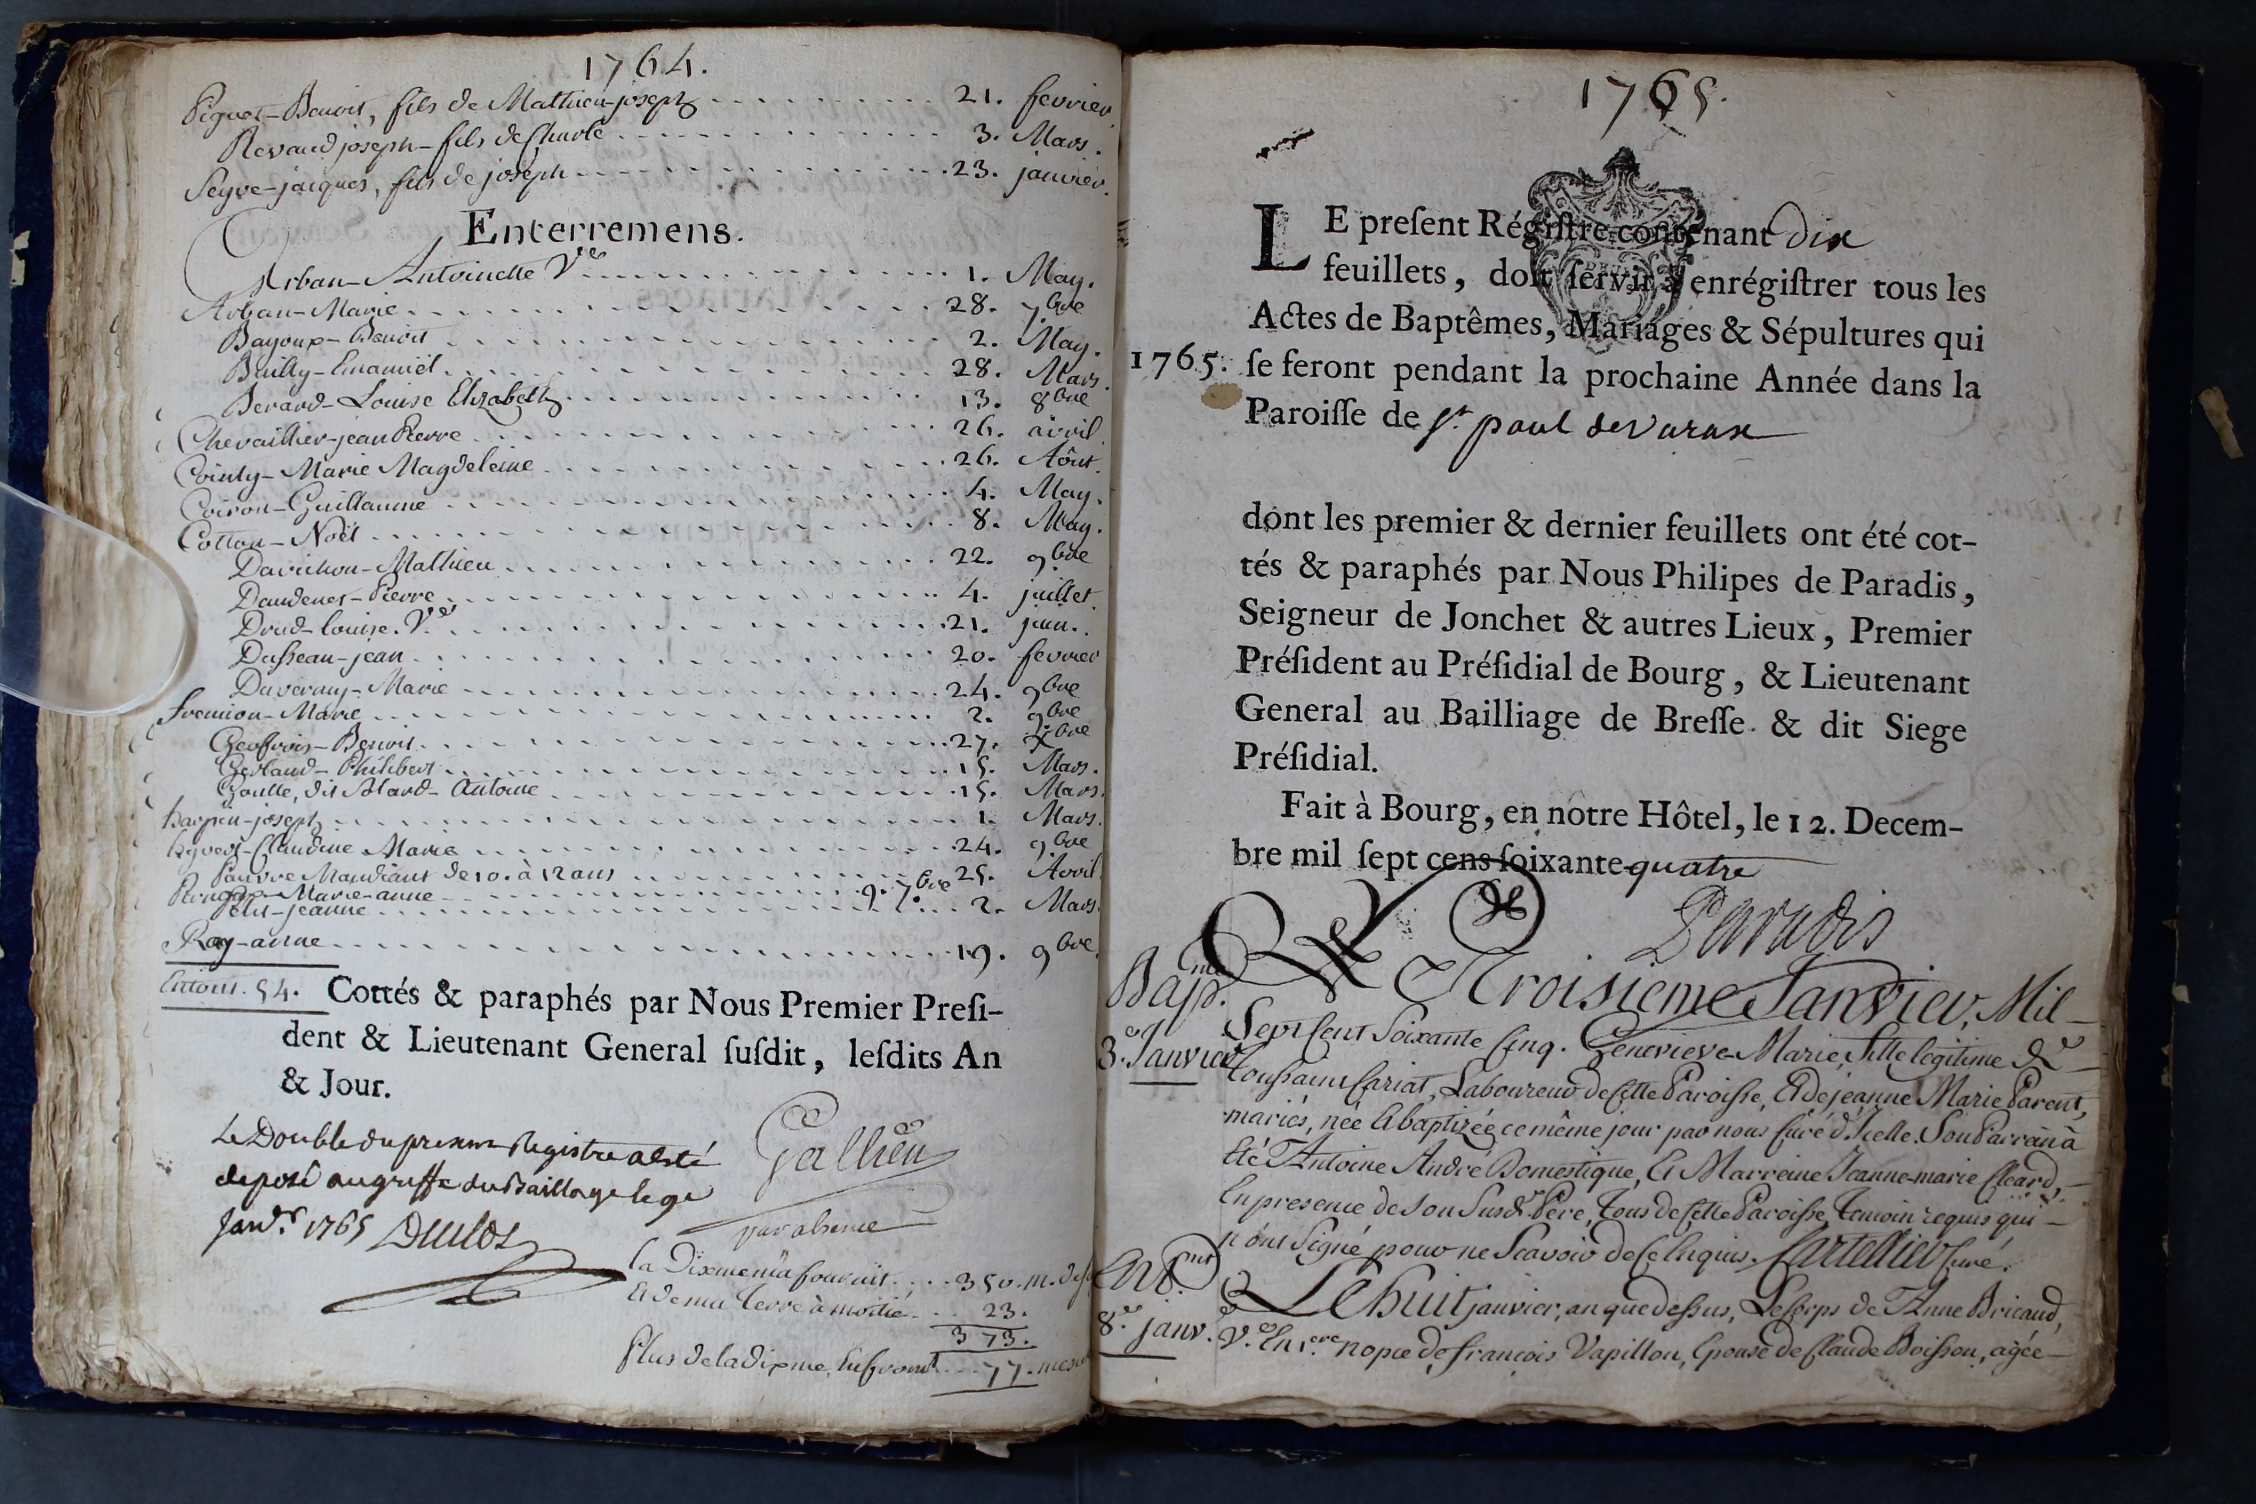 1764.
Piguet-Benoit, fils de Mathieu-joseph 21. fevrier.
Revaud joseph-fils de Charle 3. Mars.
Seyve-jacques, fils de joseph 23. janvier.
Enterremens.
Arban-Antoinette Ve 1. May.
Arban-Marie 28. 7bre
Bayoux-Benoit 2. May.
Bailly-Emanuël 28. Mars.
Berard-Louise Elizabeth 13. 8bre
Chevaillier-jean Pierre 26. avril.
Cointy-Marie Magdeleine 26. Aôut.
Coiron-Guillaume 4. May.
Cotton-Noël 8. May.
Davichon-Mathieu 22. 9bre
Daudenet-Pierre 4. juillet.
Drud-louise. Ve 21. juin.
Dusseau-jean 20. fevrier
Duvernay-Marie 24. 9bre
fremion-Marie 2. 9bre
Geoffrois-Benoit 27. Xbre
Gerland-Philibert 15. Mars.
Goutte, dit Solard-Antoine 15. Mars.
joseph 1. Mars.
Claudine Marie 24. 9bre
Pauvre Mandiant de 10. à 12 ans 25. Avril
Marie-anne 9. 7bre
Petit-jeanne 2. Mars.
Ray-anne 19. 9bre.
Entout. 54. Cottés & paraphés par Nous Premier Presi-
dent & Lieutenant General susdit, lesdits An
& Jour.
Le Double du present Registre a été
deposé au greffe du Baillage le 9e
Janvr. 1765 Duclos
Gallien
par absence
la Dixme m'a fournit 350. m. de
Et de ma terre à moitié 23.
373.
Plus de la dixme, en froment 77. mesures
1765.
LE present Régistre contenant dix
feuillets, doit servir à enrégistrer tous les
Actes de Baptêmes, Mariages & Sépultures qui
1765. se feront pendant la prochaine Année dans la
Paroisse de St. paul de Varax
dont les premier & dernier feuillets ont été cot-
tés & paraphés par Nous Philipes de Paradis,
Seigneur de Jonchet & autres Lieux, Premier
Président au Présidial de Bourg, & Lieutenant
General au Bailliage de Bresse & dit Siege
Présidial.
Fait à Bourg, en nôtre Hôtel, le 12. Decem-
bre mil sept cens soixante-quatre
Paradis
Bap.me
3.e Janvier
Le Troisieme Janvier, Mil
Sept Cent Soixante Cinq. Genevieve-Marie, fille legitime de
Toussaint Cariat, Laboureur de Cette Paroisse, Et de jeanne Marie Parent,
mariés, née Et baptizée ce même jour par nous Curé d'Icelle. Son Parrein à
Eté Antoine André Domestique, Et Marreine Jeanne-marie Cleard,
En presence de Son Susdt. Pere, Tous de Cette Paroisse, Temoin requis qui
n'ont Signé pour ne Scavoir de Ce Enquis. Cartellier Curé.
Ent.mt
8.e janv.
Le huit janvier, an que dessus, Le Corps de Anne Bricaud,
Ve. En 1.ere nopce de francois Vapillon, Epouse de Claude Boisson, agée